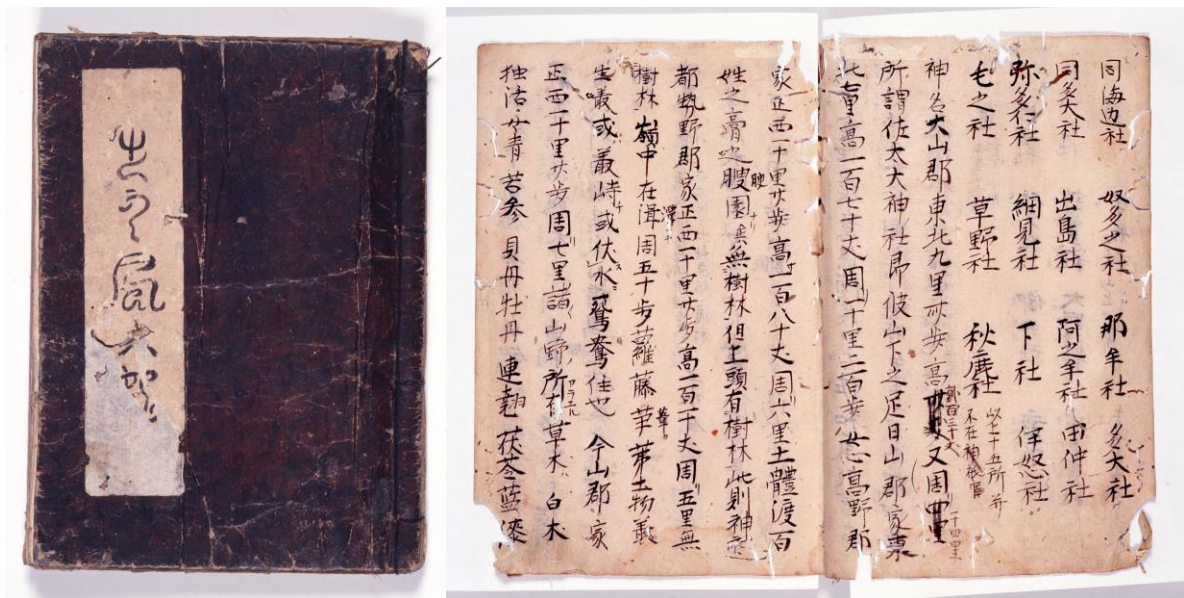 出雲風土記
同海辺社 奴多之社 那牟社 多大社
同多大社 出島社 阿之牟社 田仲社
弥多行社 細見社 下社 伴怒社
毛之社 草野社 秋鹿社 以上十五所并不在神祇官
神名大山郡東北九里卌歩高 又周
所謂佐太大神社昂彼山下之足日山郡家東
北七里高一百七十丈周一十里二百歩 女心高野郡
家正西一十里廿歩高一百八十丈周六里土體渡百
姓之膏腴園矣無樹林但上頭有樹林此則神
都勢野郡家正西一十里廿歩高一百一十丈周五里無
樹林嶺中在湒周五十歩蘿藤茅土物叢
生或叢峙或伏水鴛鴦住也 今山郡家
正西一十里廿歩周七里諸山野所有草木 白朮
独活女青苦参貝丹牡丹連翹茯苓藍漆